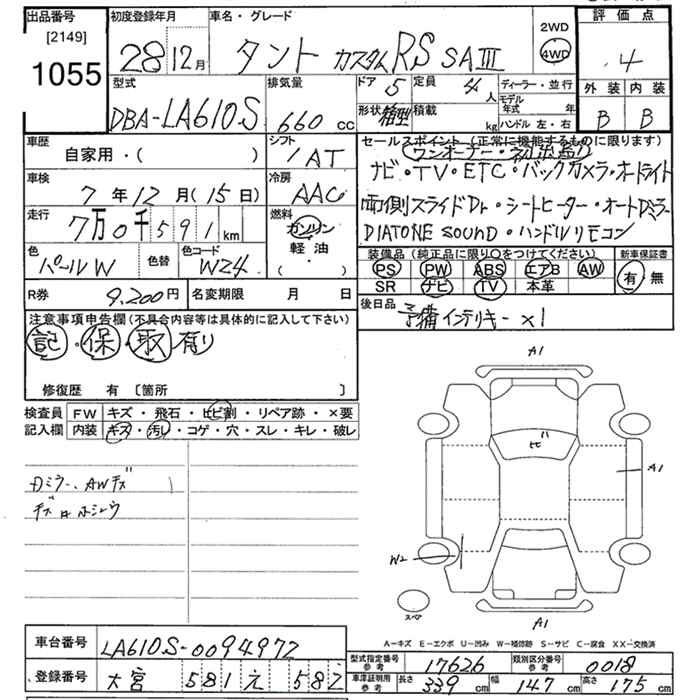 出品番号
[2149]
1055
初度登録年月
28 12月
車名・グレード
タント カスタムRS SAⅢ
2WD
4WD
評価点
4
外装 内装
B B
型式
DBA-LA610S
排気量
660cc
ドア 5
定員 4人
形状 箱型
積載 kg
ディーラー・並行
モデル年式 年
ハンドル 左・右
車歴
自家用・( )
シフト
IAT
車検
7年12月(15日)
冷房
AAC
走行
7万0千591km
燃料
ガソリン
軽油
・( )
色
パールW
色替
色コード
W24
R券 9,200円
名変期限 月 日
セールスポイント(正常に機能するものに限ります)
ワンオーナー・
ナビ・TV・ETC・バックカメラ・オートライト
両側スライドDr・シートヒーター・オートDミラー
DIATONE SOUND・ハンドルリモコン
装備品(純正品に限り○をつけてください)
新車保証書
PS PW ABS エアB AW
SR ナビ TV 本革
有 無
後日品
予備インテリキー×1
注意事項申告欄(不具合内容等は具体的に記入して下さい)
記・保・取有り
修復歴 有〔箇所 〕
検査員
記入欄
FW キズ・飛石・ヒビ割・リペア跡・×要
内装 キズ・汚レ・コゲ・穴・スレ・キレ・破レ
Dミラー、AWキズ
キズ ホシュウ
A1
ヒビ
A1
W2
スペア
A1
A-キズ E-エクボ U-凹み W-補修跡 S-サビ C-腐食 XX-交換済
車台番号 LA610S-0094972
登録番号 大宮 581 え 582
型式指定番号
参考
17626
類別区分番号
参考
0018
車庫証明用
参考
長さ 339cm
幅 147cm
高さ 175cm